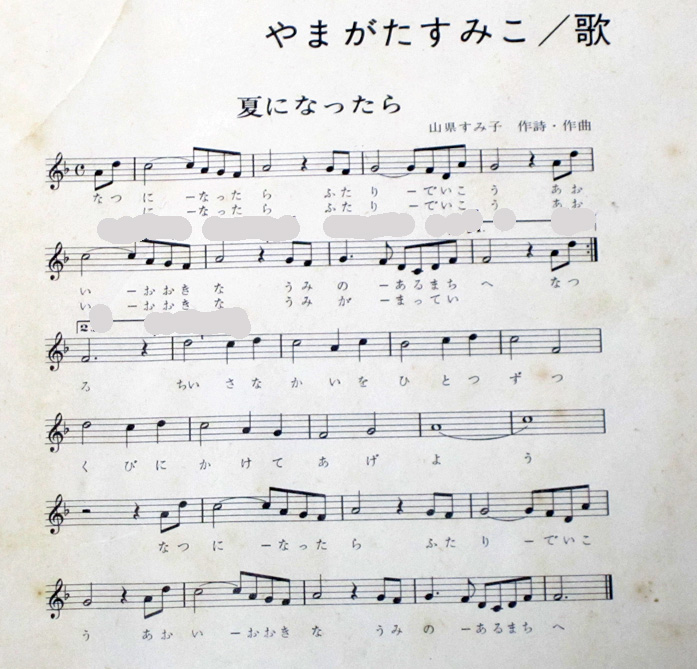 やまがたすみこ／歌
夏になったら
山県すみ子 作詩・作曲
なつ に ーなった ら ふた り ーでいこ う あお
に ーなった ら ふた り ーでいこ う あお
い ーおおき な うみ の ーあるまち へ なつ
い ーおおき な うみ が ーまってい
2.
る ちい さ な か い を ひ と つ ず つ
く び に か け て あ げ よ う
なつ に ーなった ら ふた り ーでいこ
う あお い ーおおき な うみ の ーあるまち へ